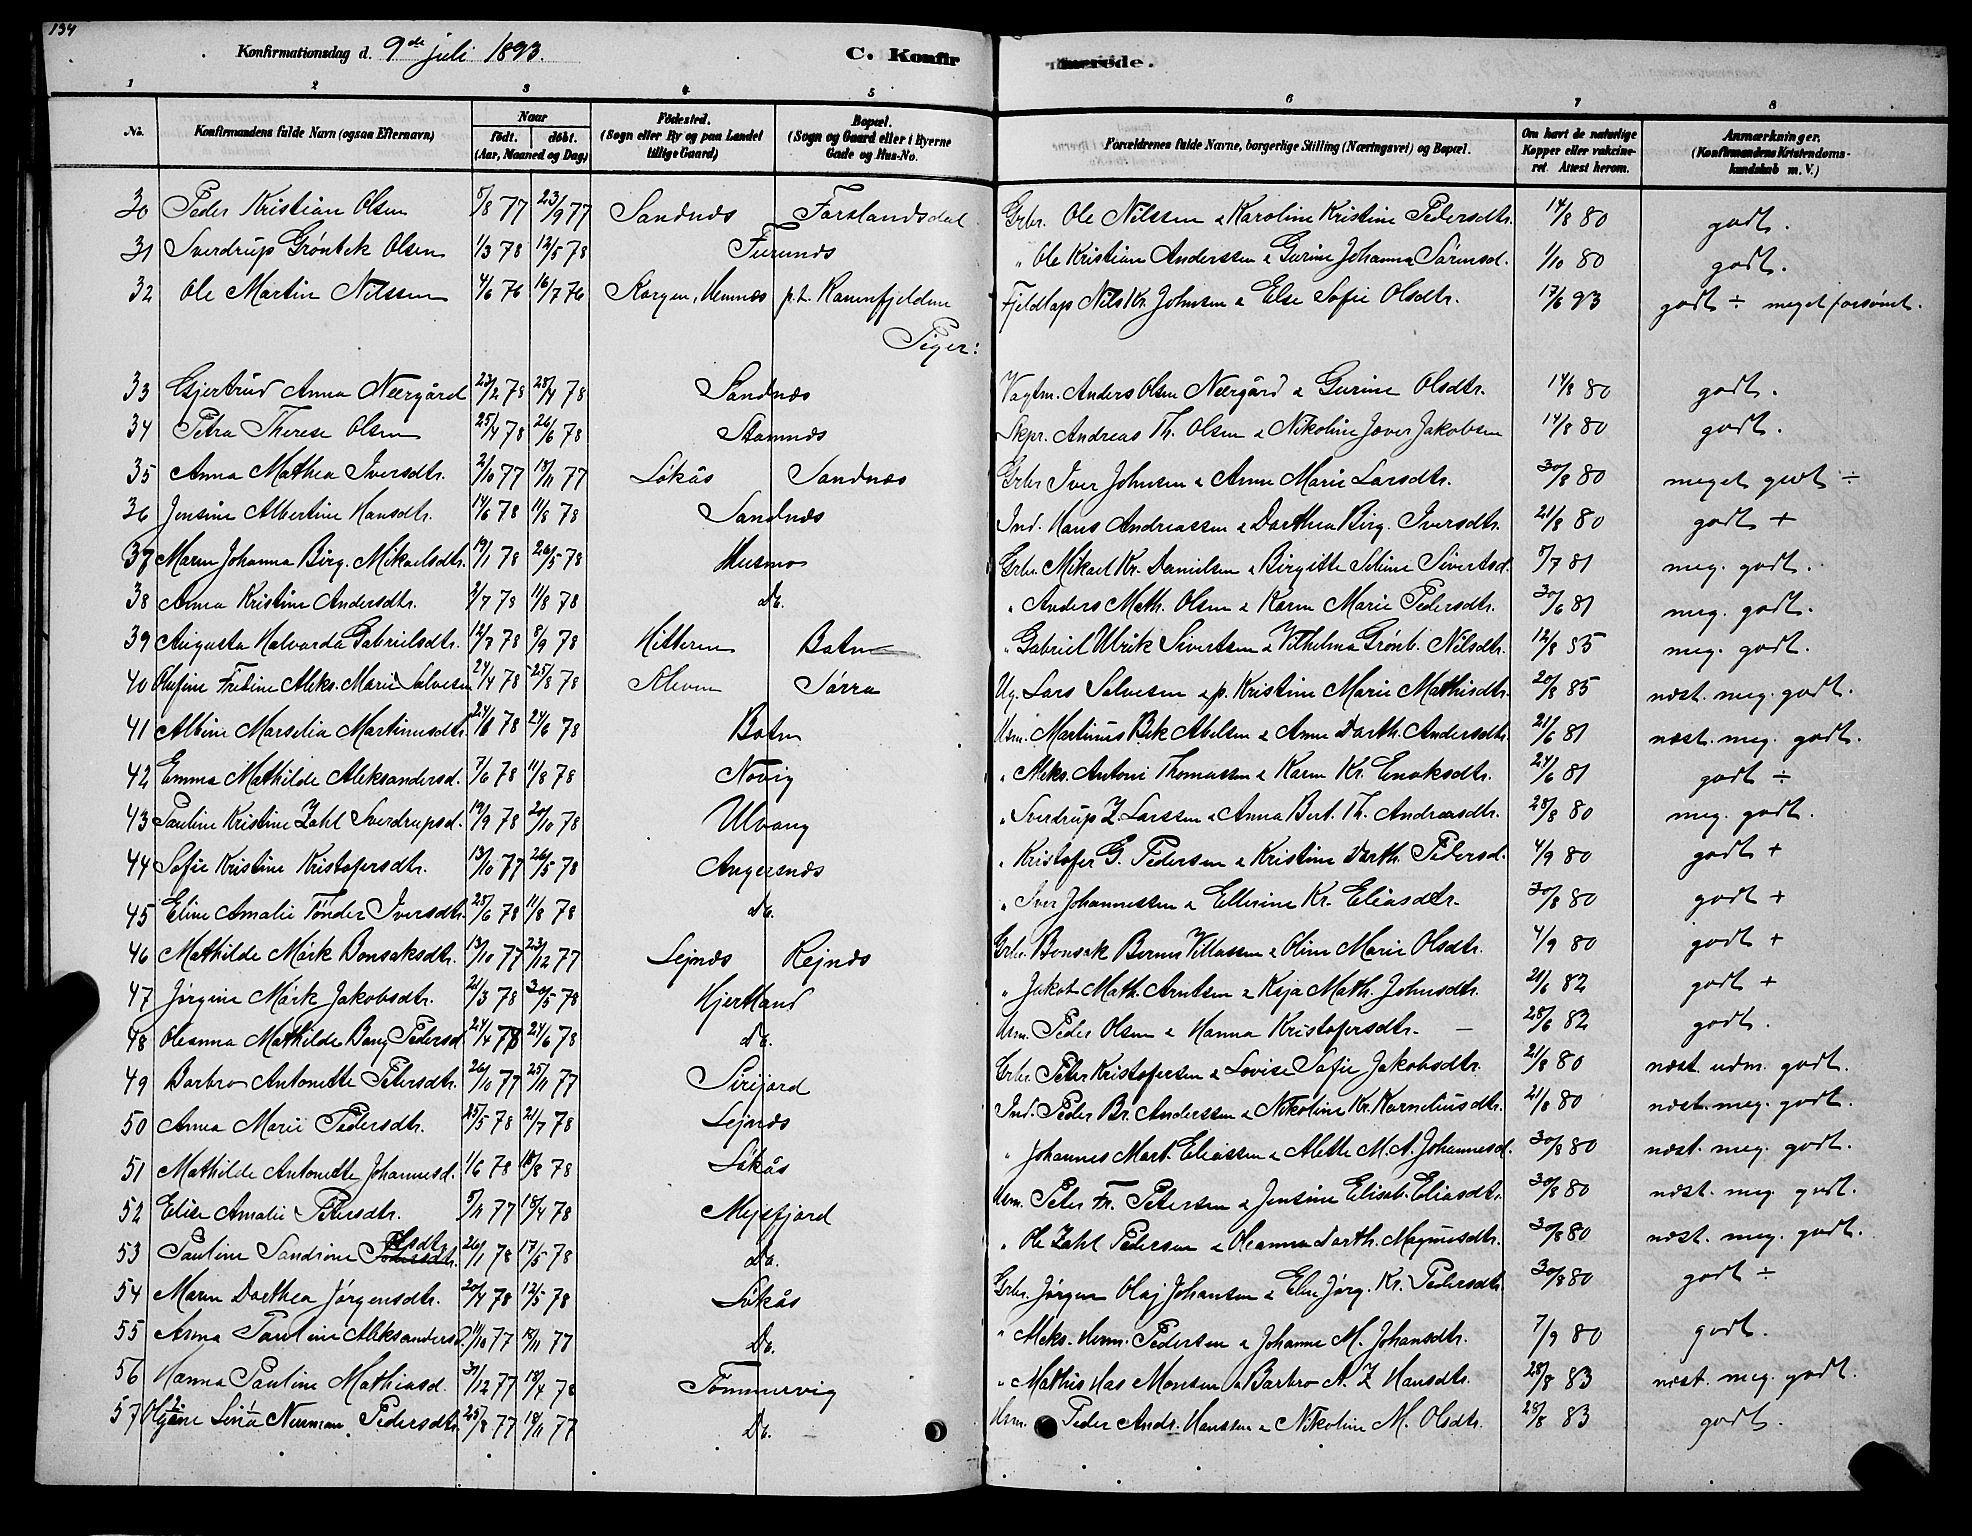 134
Konfirmationsdag d. 9de juli 1893.
C. Konfirmerede.
1 2 3 4 5 6 7 8
No. Konfirmandens fulde Navn (ogsaa Efternavn) Naar født. døbt. (Aar, Maaned og Dag) Fødested. (Sogn eller By og paa Landet tillige Gaard) Bopæl. (Sogn og Gaard eller i Byerne Gade og Hus-No. Forældrenes fulde Navne, borgerlige Stilling (Næringsvei) og Bopæl. Om havt de naturlige Kopper eller vakcineret. Attest herom. Anmærkninger. (Konfirmandens Kristendomskundskab m. V.)
30 Peder Kristian Olsen 5/8 77 23/9 77 Sandnæs Forslandsdal Grbr. Ole Nilssen & Karoline Kristine Pedersdtr. 14/8 80 godt.
31 Sverdrup Grøntek Olsen 1/3 78 12/5 78 Furunæs " Ole Kristian Anderssen & Gurine Johanna Sørensd. 1/10 80 godt.
32 Ole Martin Nilssen 4/6 76 16/7 76 Korgen, Hemnæs p.t. Kannfjeldene Fjeldlap Nils Kr. Johnsen & Else Sofie Olsdtr. 17/6 93 godt ÷ meget forsømt.
Piger:
33 Gjertrud Anna Neergård 23/2 78 28/4 78 Sandnæs Vagtm. Anders Olsen Neergård & Gurine Olsdtr. 14/8 80 godt.
34 Petra Therese Olsen 25/4 78 26/6 78 Stamnæs Skpr. Andreas Th. Olsen & Nikoline Jæver Jakobsen 14/8 80 godt.
35 Anna Mathea Iversdtr. 2/10 77 18/11 77 Løkås Sandnæs Grbr Iver Johnsen & Anne Marie Larsdtr. 30/8 80 meget godt ÷
36 Jensine Albertine Hansdtr. 14/6 78 11/8 78 Sandnæs Ind. Hans Andreassen & Dorthea Birg. Iversdtr. 21/8 80 godt +
37 Maren Johanna Birg. Mikaelsdtr. 19/1 78 26/5 78 Husmo Grbr. Mikael Kr. Danielsen & Birgitte Seline Sivertsd. 8/7 81 meg. godt.
38 Anna Kristine Andersdtr. 2/7 78 11/8 78 do. " Anders Math. Olsen & Karen Marie Pedersdtr. 30/6 81 meg. godt.
39 Augusta Halvarda Gabrielsdtr. 12/7 78 8/9 78 Hitteren Botn " Gabriel Ulrik Sivertsen & Vilhelma Grønb. Nilsdtr. 12/8 85 meg. godt.
40 Olufine Fredine Aleks. Marie Salvesen 24/4 78 25/8 78 Aleven Sørra Ug. Lars Salvesen & p. Kristine Marie Mathisdtr. 20/8 85 næst. meg. godt.
41 Albine Marselia Martinusdtr. 24/1 78 24/6 78 Botn Hsm. Martinus Bek Abelsen & Anne Dorth. Andersdtr. 21/6 81 næst. meg. godt.
42 Emma Mathilde Aleksandersd. 7/6 78 11/8 78 Novig " Aleks. Antoni Thomassen & Karen Kr. Enoksdtr. 24/6 81 godt ÷
43 Pauline Kristine Zahl Sverdrupsd. 19/9 78 20/10 78 Ulvang " Sverdrup Z. Larssen & Anna Bert. Th. Andreasdtr. 28/8 80 meg. godt.
44 Sofie Kristine Kristofersdtr. 13/10 77 26/5 78 Angersnæs " Kristofer G. Pedersen & Kristine Dorth. Pedersd. 4/9 80 godt +
45 Eline Amalie Tønder Iversdtr. 28/6 78 11/8 78 do. " Iver Johannessen & Ellerine Kr. Eliasdtr. 30/8 80 godt +
46 Mathilde Mørk Bonsaksdtr. 13/10 77 23/12 77 Lejnæs Rejnæs Grbr. Bonsak Bernus Villassen & Oline Marie Olsdtr. 4/9 80 godt +
47 Jørgine Mørk Jakobsdtr. 21/3 78 30/5 78 Hjertland " Jakob Math. Arntsen & Kaja Math. Johnsdtr. 21/6 82 godt +
48 Oleanna Mathilde Bang Pedersd 24/4 78 24/6 78 do. Hsm. Peder Olsen & Hanna Kristofersdtr. 28/6 82 godt.
49 Barbro Antonette Petersdtr. 26/10 77 25/11 77 Sirijord Grbr. Peter Kristofersen & Lovise Sofie Jakobsdtr. 21/8 80 næst udm. godt.
50 Anna Marie Pedersdtr. 25/5 78 21/7 78 Lejnæs Ind. Peder Br. Anderssen & Nikoline Kr. Korneliusdtr. 21/8 80 næst. meg. godt.
51 Mathilde Antonette Johannesd. 1/6 78 18/8 78 Løkås " Johannes Mart. Eliassen & Alette M. A. Johannesd. 30/8 80 næst. meg. godt.
52 Elise Amalie Petersdtr. 5/11 77 18/4 78 Mejsfjord Hsm. Peter Fr. Petersen & Jensine Elisab. Eliasdtr. 30/8 80 næst. meg. godt.
53 Pauline Sandrine Olsdtr. 26/1 78 17/5 78 do. " Ole Zahl Pedersen & Oleanna Dorth. Magnusdtr. 30/8 80 næst. meg. godt.
54 Maren Dorthea Jørgensdtr. 20/4 78 12/5 78 Løkås Grbr. Jørgen Olaj Johansen & Eline Jørg. Kr. Pedersdtr. 30/8 80 godt ÷
55 Anna Pauline Aleksandersd. 11/10 77 18/11 77 do. " Aleks. Herm. Pedersen & Johanne M. Johansdtr. 7/9 80 godt.
56 Hanna Pauline Mathiasd. 31/12 77 18/4 78 Tømmervig " Mathis Has Monsen & Barbro A. Z Hansdtr. 28/8 83 næst. meg. godt.
57 Olgine Lina Neuman Pedersdtr. 25/8 77 18/11 77 do. Hsm. Peder Andr. Hanssen & Nikoline M. Olsdtr. 28/8 83 godt.